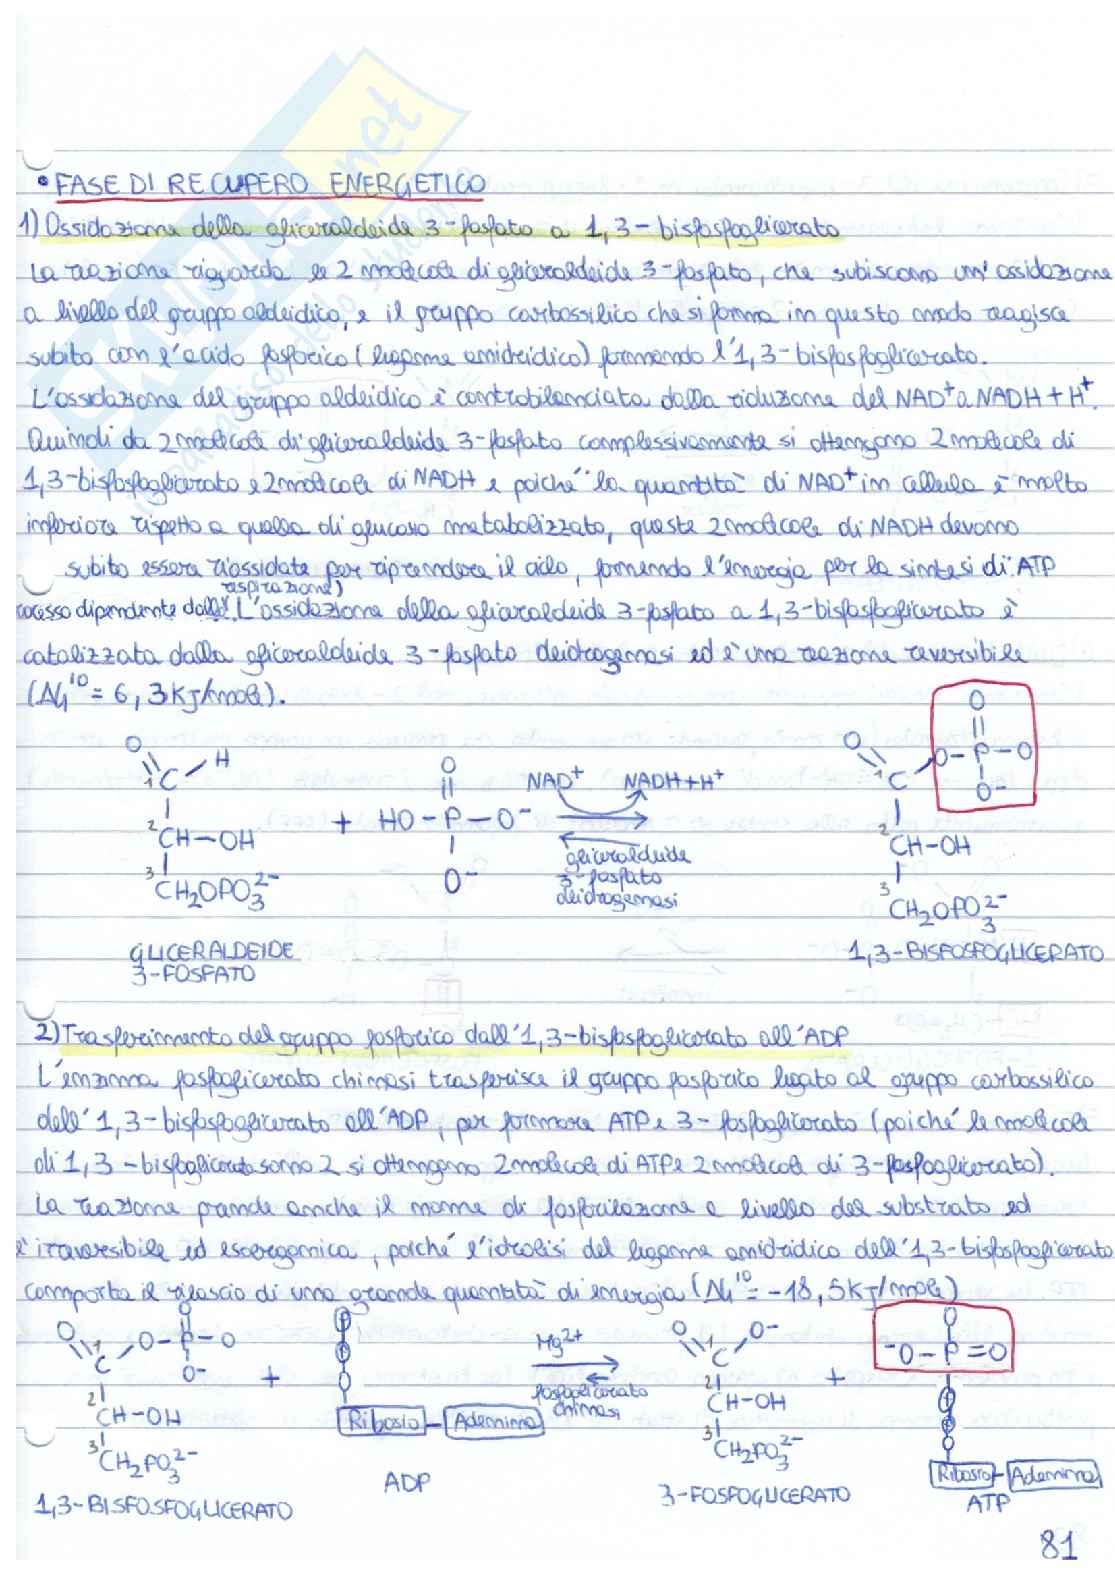 • FASE DI RECUPERO ENERGETICO
1) Ossidazione della gliceraldeide 3-fosfato a 1,3-bisfosfoglicerato
La reazione riguarda le 2 molecole di gliceraldeide 3-fosfato, che subiscono un'ossidazione
a livello del gruppo aldeidico, e il gruppo carbossilico che si forma in questo modo reagisce
subito con l'acido fosforico (legame anidridico) formando l'1,3-bisfosfoglicerato.
L'ossidazione del gruppo aldeidico è controbilanciata dalla riduzione del NAD+ a NADH + H+.
Quindi da 2 molecole di gliceraldeide 3-fosfato complessivamente si ottengono 2 molecole di
1,3-bisfosfoglicerato e 2 molecole di NADH e poiché la quantità di NAD+ in cellula è molto
inferiore rispetto a quella di glucosio metabolizzato, queste 2 molecole di NADH devono
subito essere riossidate per riprendere il ciclo, fornendo l'energia per la sintesi di ATP
respirazione)
ocesso dipendente dalla. L'ossidazione della gliceraldeide 3-fosfato a 1,3-bisfosfoglicerato è
catalizzata dalla gliceraldeide 3-fosfato deidrogenasi ed è una reazione reversibile
(ΔG'° = 6,3 KJ/mole).
O H 1C 2CH-OH 3CH2OPO3 2-
+ HO-P-O- O O-
NAD+ NADH+H+
gliceraldeide
3-fosfato
deidrogenasi
O 1C O-P-O O O- 2CH-OH 3CH2OPO3 2-
GLICERALDEIDE
3-FOSFATO
1,3-BISFOSFOGLICERATO
2) Trasferimento del gruppo fosforico dall'1,3-bisfosfoglicerato all'ADP
L'enzima fosfoglicerato chinasi trasferisce il gruppo fosforico legato al gruppo carbossilico
dell'1,3-bisfosfoglicerato all'ADP, per formare ATP e 3-fosfoglicerato (poiché le molecole
di 1,3-bisfoglicerato sono 2 si ottengono 2 molecole di ATP e 2 molecole di 3-fosfoglicerato).
La reazione prende anche il nome di fosforilazione a livello del substrato ed
è irreversibile ed esoergonica, poiché l'idrolisi del legame anidridico dell'1,3-bisfosfoglicerato
comporta il rilascio di una grande quantità di energia (ΔG'° = -18,5KJ/mole)
O 1C O-P-O O O- 2CH-OH 3CH2PO3 2-
+
P P O
Ribosio - Adenina
Mg2+
fosfoglicerato
chinasi
O 1C O- 2CH-OH 3CH2PO3 2-
+
O -O-P=O
Ribosio - Adenina
1,3-BISFOSFOGLICERATO
ADP
3-FOSFOGLICERATO
ATP
81
SKUOLA.net
il paradiso dello studente